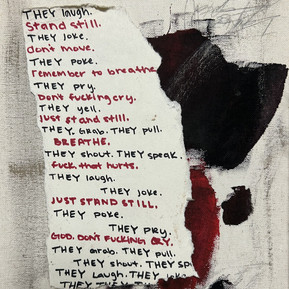 THEY laugh.
Stand still.
THEY Joke.
don't move.
THEY poke.
remember to breathe
THEY pry.
Don't fucking cry.
THEY yell.
Just stand still.
THEY. Grab. THEY pull.
BREATHE.
THEY shout. THEY speak.
fuck that hurts.
THEY laugh.
THEY Joke.
JUST STAND STILL.
THEY poke.
THEY pry.
GOD. DON'T FUCKING CRY.
THEY Grab. THEY pull.
THEY shout. THEY sp
THEY Laugh. THEY
THEY THEY